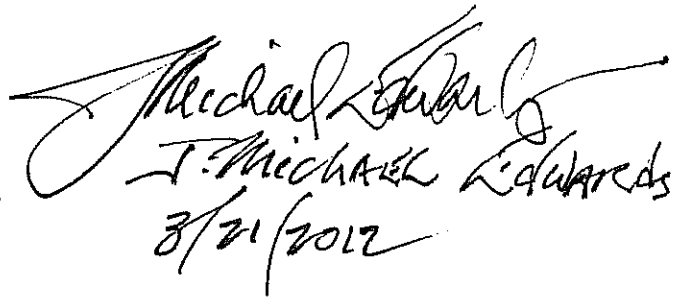 J Michael Edwards
J. Michael Edwards
3/21/2012